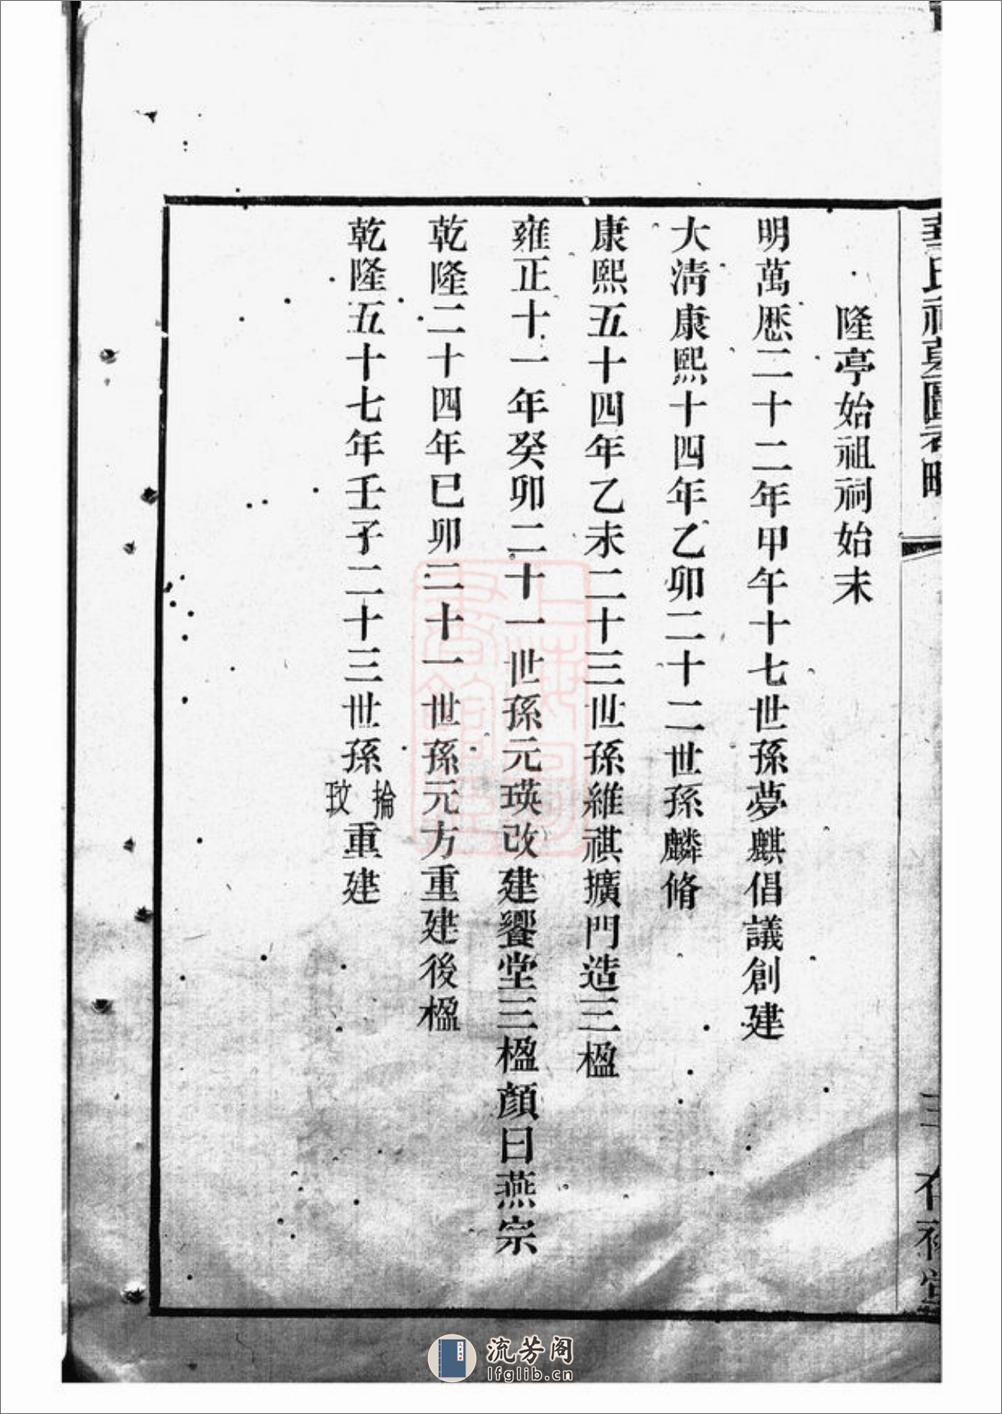 華氏祠墓圖考略
三
存裕堂
隆亭始祖祠始末
明萬厯二十二年甲午十七世孫夢麒倡議創建
大淸康熙十四年乙卯二十二世孫麟脩
康熙五十四年乙未二十三世孫維祺擴門造三楹
雍正十一年癸卯二十一世孫元瑛改建饗堂三楹顏曰燕宗
乾隆二十四年已卯二十一世孫元方重建後楹
乾隆五十七年壬子二十三世孫掄玟重建
上海圖書館藏
流芳阁
lfglib.cn